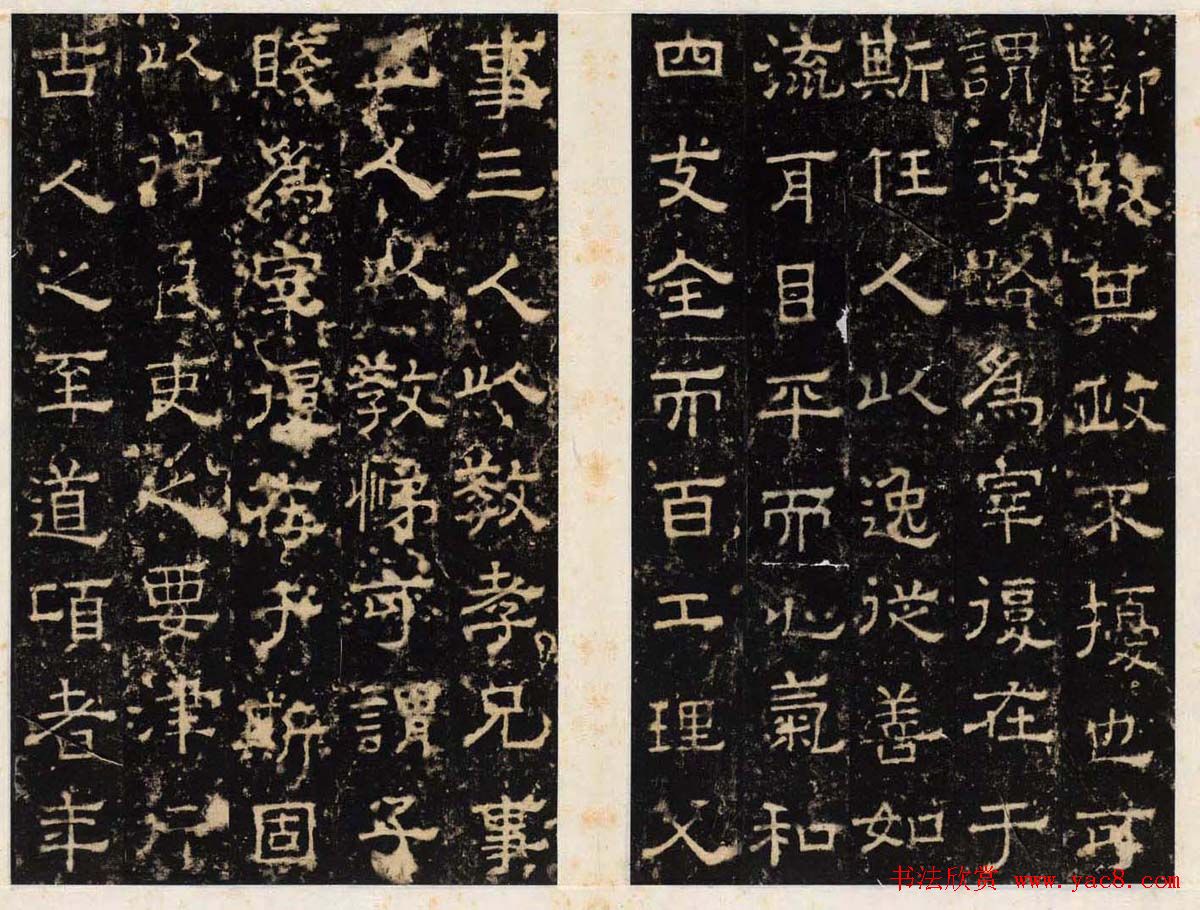 斷故其政不擾也可
謂季路為宰復在于
斯任人以逸從善如
流耳目平而心氣和
四支全而百工理父
事三人以教孝兄事
五人以教悌可謂子
賤為宰復在於斯固
以得良吏之要津行
古人之至道項者年
书法欣赏 www.yac8.com